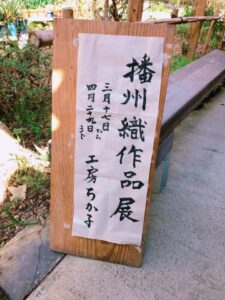 播州織作品展
三月十七日から
四月二十九日まで
工房ちか子